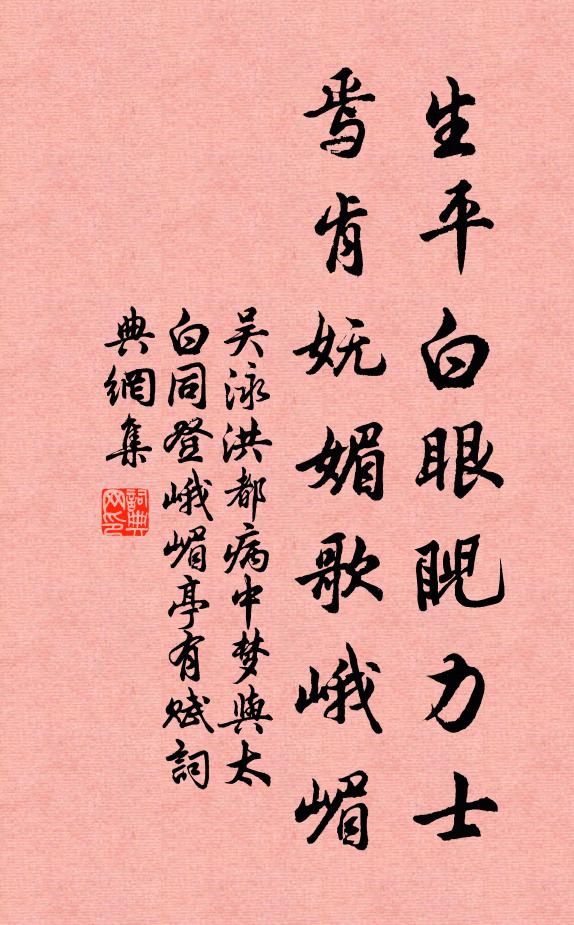 生平白眼睨力士
焉肯妩媚歌峨嵋
吴泳洪都病中梦與太
白同登峨嵋亭有赋詞
典網集
詞典网印